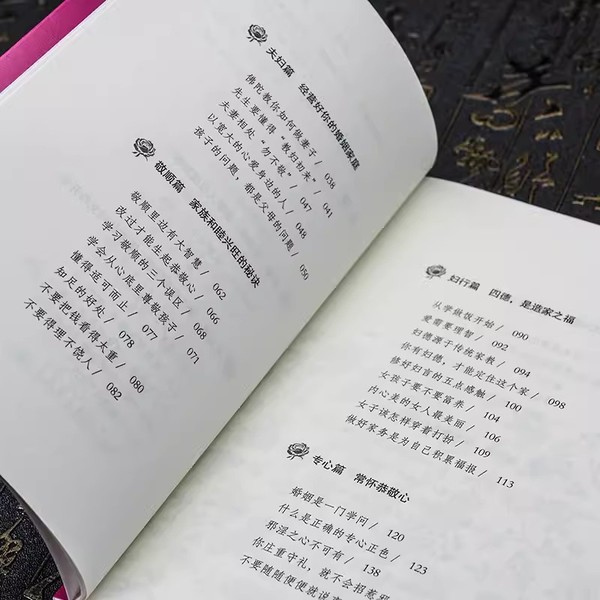 夫妇篇 经营好你的婚姻家庭
佛陀教你如何做妻子/ 038
先生要懂得“教妇初来”/ 041
夫妻相处“勿不敬”/ 047
以宽大的心爱身边的人/ 048
孩子的问题，都是父母的问题/ 050
敬顺篇 家族和睦兴旺的秘诀
敬顺里边有大智慧/ 062
改过才能生起恭敬心/ 066
学习敬顺的三个误区/ 068
学会从心底里尊敬孩子/ 071
懂得适可而止/ 077
知足的好处/ 078
不要把钱看得太重/ 080
不要得理不绕人/ 082
妇行篇 四德，是造家之福
从学做饭开始/ 090
爱需要理智/ 092
妇德源于传统家教/ 094
你有妇德，才能定住这个家/ 098
修好妇言的五点感触/ 100
女孩子要不要富养/ 104
内心美的女人最美丽/ 106
女子该怎样穿着打扮/ 109
做好家务是为自己积累福报/ 113
专心篇 常怀恭敬心
婚姻是一门学问/ 120
什么是正确的专心正色/ 123
邪淫之心不可有/ 138
你庄重守礼，就不会招惹邪
不要随随便便就说